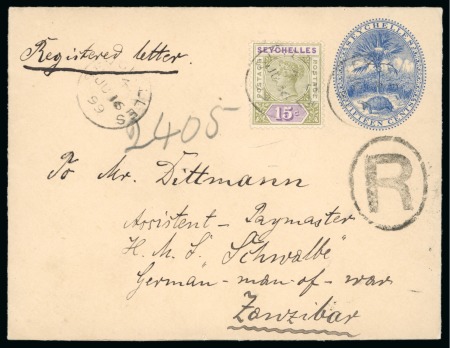 Registered letter.
SEYCHELLES
POSTAGE
POSTAGE
15c
SEYCHELLES
FIFTEEN CENTS
2405
R
To Mr. Dittmann
Assistent - Paymaster
H. M. S. "Schwalbe"
German - man - of - war
Zanzibar